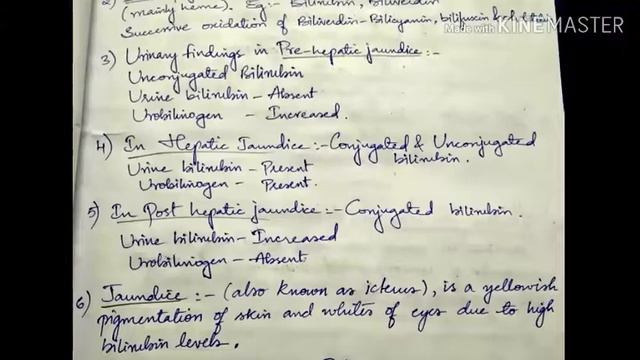 2)
(mainly heme). Eg:- Bilirubin, Biliverdin
Successive oxidation of Biliverdin - Bilicyanin, bilifuscin &
Made with KINEMASTER
3) Urinary findings in Pre-hepatic jaundice :-
Unconjugated Bilirubin
Urine bilirubin - Absent
Urobilinogen - Increased.
4) In Hepatic Jaundice :- Conjugated & Unconjugated
bilirubin.
Urine bilirubin - Present
Urobilinogen - Present.
5) In Post hepatic jaundice :- Conjugated bilirubin.
Urine bilirubin - Increased
Urobilinogen - Absent
6) Jaundice :- (also known as icterus), is a yellowish
pigmentation of skin and whites of eyes due to high
bilirubin levels.